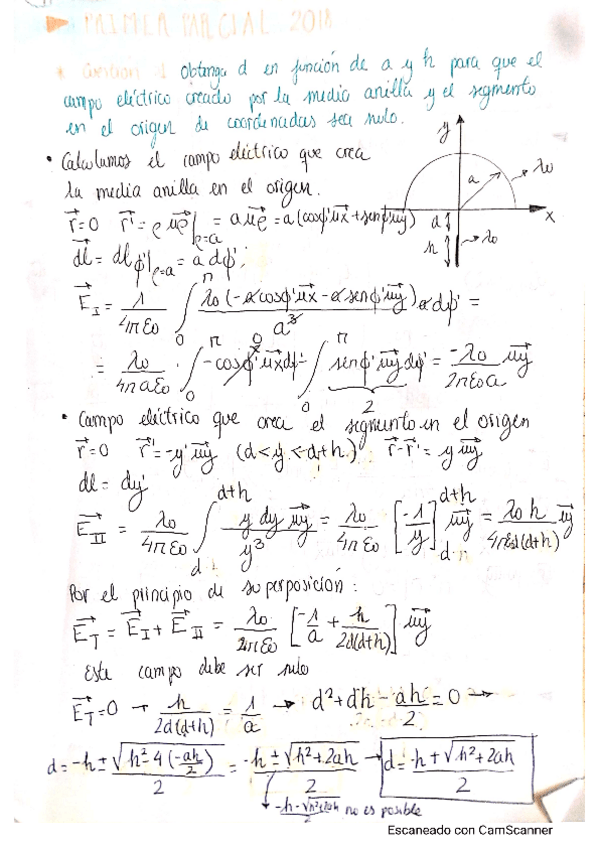 PRIMER PARCIAL 2018
* Cuestión 1 Obtenga d en función de a y h para que el
campo eléctrico creado por la media anilla y el segmento
en el origen de coordenadas sea nulo.
• Calculamos el campo eléctrico que crea
la media anilla en el origen.
y
a
λo
x
d
h
λo
r⃗=0 r⃗'=ρ u⃗ρ|ρ=a = a u⃗ρ = a(cosφ' u⃗x + senφ' u⃗y)
dl⃗ = dl φ'|ρ=a = a dφ'
E⃗_I = 1/(4πεo) ∫₀^π λo(-a cosφ' u⃗x - a senφ' u⃗y) a dφ' / a³ =
= λo/(4πaεo) ∫₀^π -cosφ' u⃗x dφ' (0) - ∫₀^π senφ' u⃗y dφ' (2) = -λo/(2πεo a) u⃗y
• Campo eléctrico que crea el segmento en el origen
r⃗=0 r⃗'=-y' u⃗y (d<y'<d+h) r⃗-r⃗' = y u⃗y
dl = dy'
E⃗_II = λo/(4πεo) ∫_d^(d+h) y dy u⃗y / y³ = λo/(4πεo) [-1/y]_d^(d+h) u⃗y = λo h/(4πεo d(d+h)) u⃗y
Por el principio de superposición:
E⃗_T = E⃗_I + E⃗_II = λo/(2πεo) [-1/a + h/(2d(d+h))] u⃗y
Este campo debe ser nulo
E⃗_T=0 → h/(2d(d+h)) = 1/a → d²+dh - ah/2 = 0 →
d = (-h ± √(h²-4(-ah/2)))/2 = (-h ± √(h²+2ah))/2 → d = (-h + √(h²+2ah))/2
(-h - √(h²+2ah))/2 no es posible
Escaneado con CamScanner